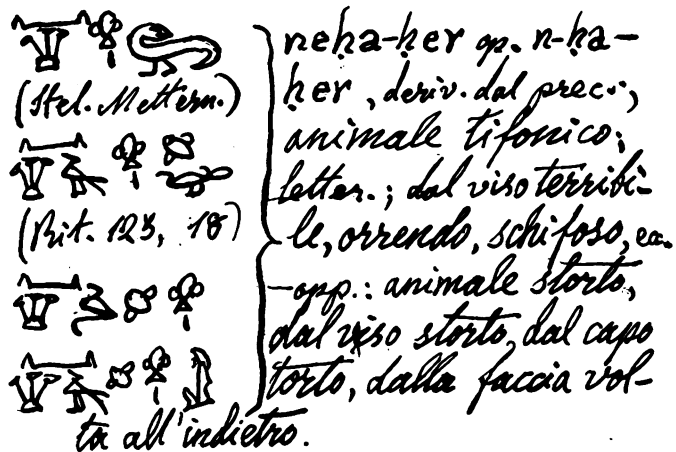 neḥa-ḥer op. n-ḥa-
(Stel. Mettern.)
ḥer, deriv. dal prec.,
animale tifonico;
letter.; dal viso terribi-
(Rit. 125, 18)
le, orrendo, schifoso, ecc.
— opp.: animale storto,
dal viso storto, dal capo
torto, dalla faccia vol-
ta all'indietro.